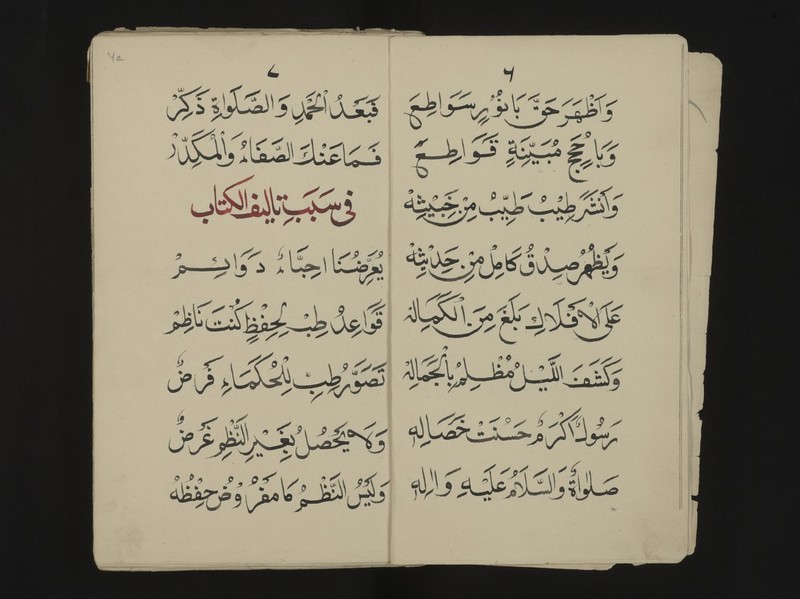 ٦
وَاَظْهَرَ حَقَّ بَا نُوْرٍ سَوَاطِعَ
وَبَا حُجَجٍ مُبَيِّنِةٍ قَوَاطِعَ
وَاَنْشَرَ طِيْبُ طَيِّبُ مِنْ خَبِيْثِهْ
وَيَظْهُرُ صِدْقُ كَامِلْ مِنْ حَدِيْثِهْ
عَلَى الْاَفْلَاكِ بَلَغَ مِنَ الْكَمَالِهْ
وَكَشَفَ اللَّيْلُ مُظْلِمُ بِالْجَمَالِهْ
رَسُوْلٌ اَكْرَمٌ حَسُنَتْ خَصَالِهِ
صَلٰواةٌ وَالسَّلَامُ عَلَيْهِ وَاٰلِهِ
٧
فَبَعْدُ الْحَمْدِ وَالصَّلَوَاةِ ذَكِّرْ
فَمَا عَنْكَ الصَّفَاءُ وَالْمُكَدِّرْ
فى سَبَبِ تاليف الكتاب
يُعَرِّضُنَا احِبَّاءٌ دَوَائِمْ
قَوَاعِدُ طِبِّ لِحِفْظٍ كُنْتَ نَاظِمْ
تَصَوَّرُ طِبِّ لِلْحُكَمَاءِ فَرَضٌ
وَلَا يَحْصُلُ بِغَيْرِ النَّظْمِ غَرَضٌ
وَلَيْسُ النَّظْمُ مَا مَفْرُوْضُ حِفْظُهْ